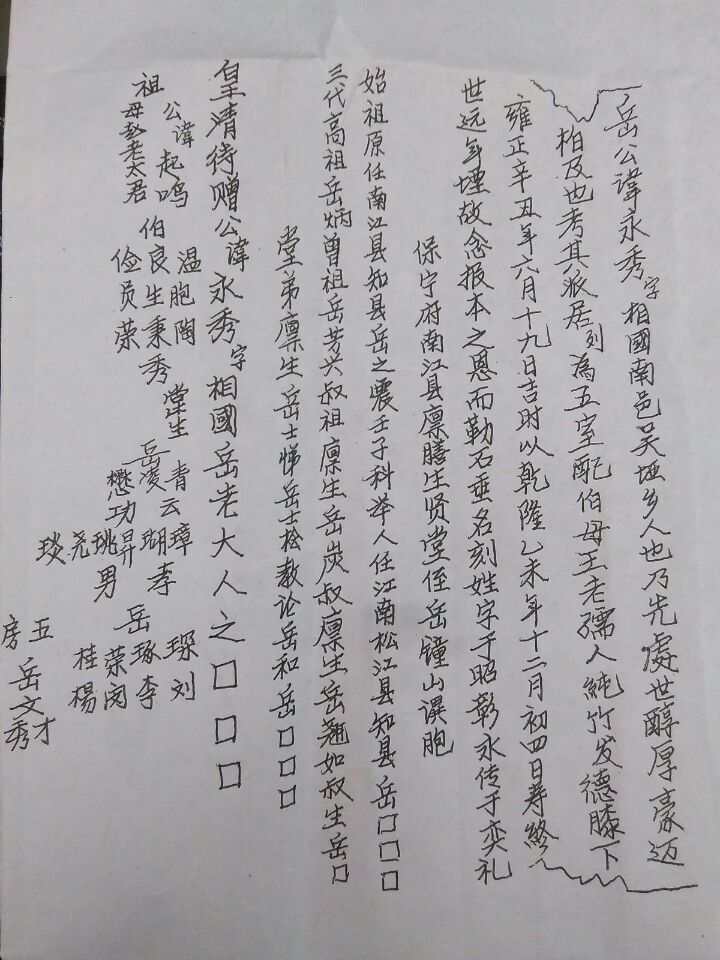 岳公讳永秀字相國南邑吴垭乡人也乃先處世醇厚豪迈
柏及也考其派居列為五室配伯母王老孺人純竹发德膝下
雍正辛丑年六月十九日吉时以乾隆乙未年十二月初四日寿終
世远年堙故念报本之恩而勒石垂名刻姓字于昭彰永传于奕礼
保宁府南江县廪膳生贤堂侄岳鐘山谟胞
始祖原任南江县知县岳之震壬子科举人任江南松江县知县岳□□□
三代高祖岳炳曾祖岳芳兴叔祖廪生岳炭叔廪生岳翘如叔生岳□
堂弟廪生岳士悌岳士松教论岳和岳□□□
皇清待赠公讳永秀字相國岳老大人之□□□
祖
公讳起鸣
母赵老太君
伯
温胞陶
良生秉秀
俭员荣
堂生
岳
青云璋
凌
瑚孝
懋功昇
珧
尧
琰
男
岳
琛刘
琢李
荣闵
桂楊
五
房
岳文秀
才